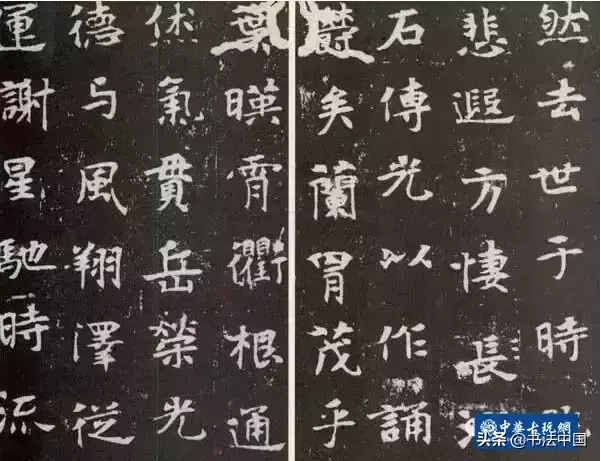 然去世于時
悲遐方悽長
石傳光以作誦
欝矣蘭胄茂乎
葉暎霄衢根通
烋氣貫岳榮光
德与風翔澤從
運謝星馳時流
中華古玩網
头条 @书法中国